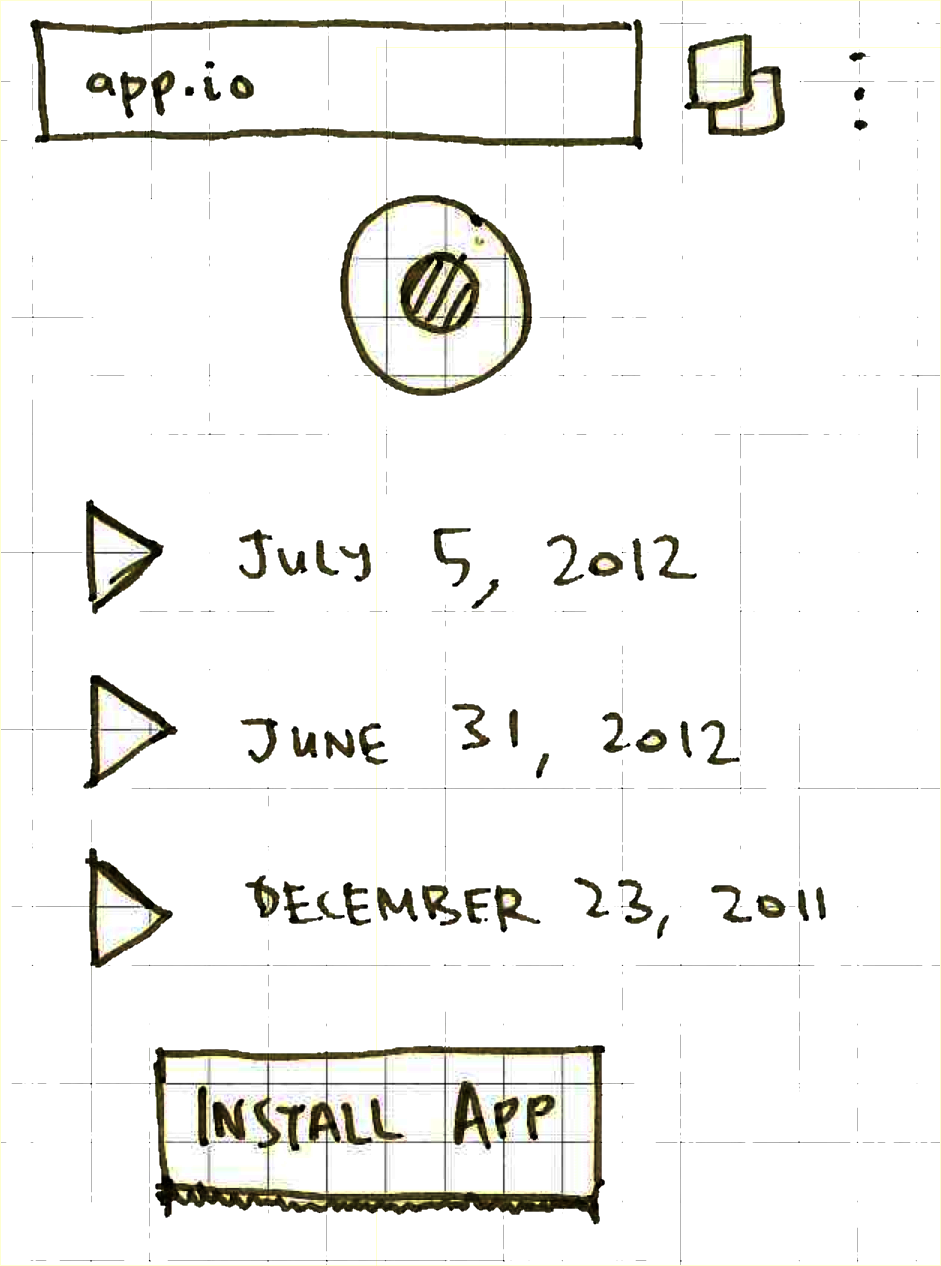 app.io
JULY 5, 2012
JUNE 31, 2012
DECEMBER 23, 2011
INSTALL APP